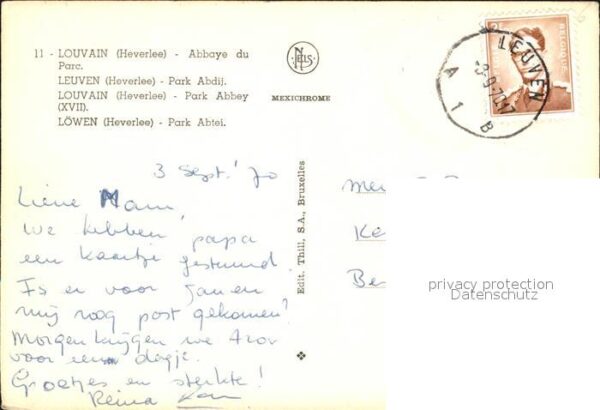 11 - LOUVAIN (Heverlee) - Abbaye du
Parc.
LEUVEN (Heverlee) - Park Abdij.
LOUVAIN (Heverlee) - Park Abbey
(XVII).
LÖWEN (Heverlee) - Park Abtei.
NELS
MEXICHROME
LEUVEN
A 1 B
BELGIQUE
Edit. Thill, S.A., Bruxelles
3 Sept.' 70
Lieve Mam,
We hebben papa
een kaartje gestuurd.
Is er voor Jan en
mij nog post gekomen?
Morgen krijgen we
voor een dagje.
Groetjes en sterkte!
Reina
Ke
Be
privacy protection
Datenschutz